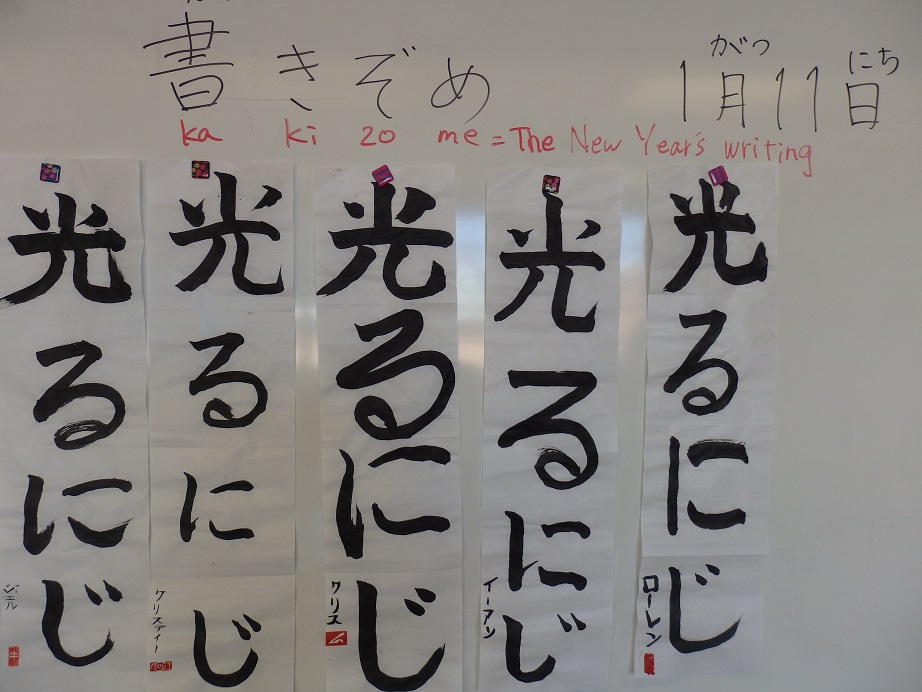 書きぞめ
がつ にち
1月11日
ka ki zo me = The New Year's writing
光るにじ
ジエル
光るにじ
クリスティー
光るにじ
クリス
光るにじ
イーアン
光るにじ
ローレン